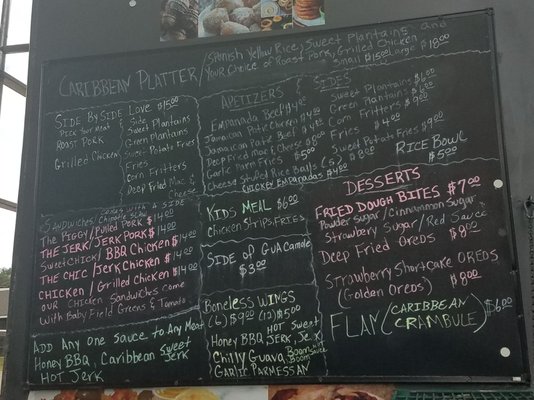 CARIBBEAN PLATTER /
Spanish Yellow Rice, Sweet Plantains, and
Your Choice of Roast Pork, Grilled Chicken
Small $15.00 Large $18.00
SIDE BY SIDE LOVE $15.00
PICK YOUR MEAT & Side
ROAST PORK
Grilled Chicken
Sweet Plantains
Green Plantains
Sweet Potato Fries
Fries
Corn Fritters
Deep Fried Mac & Cheese
APETIZERS &
SIDES
Empanada Beef $4.00
Jamaican Patie Chicken $4.00
Jamaican Patie Beef $4.00
Deep Fried Mac & Cheese $8.00
Garlic Parm Fries $5.00
Cheese Stuffed Rice Balls (5) $8.00
CHICKEN EMPANADAS $4.00
Sweet Plantains $6.00
Green Plantains $6.00
Corn Fritters $9.00
Fries $4.00
Sweet Potato Fries $9.00
RICE BOWL
$5.00
SANDWICHES/
WITH A SIDE
The PIGGY/Pulled Pork $14.00
THE JERK/JERK PORK $14.00
SWEET CHICK/BBQ Chicken $14.00
THE CHIC/Jerk Chicken $14.00
CHICKEN/Grilled Chicken $14.00
OUR Chicken Sandwiches Come
With Baby Field Greens & Tomato
KIDS MEAL $6.00
Chicken Strips, FRIES
SIDE OF GUACAMOLE
$3.00
DESSERTS
FRIED DOUGH BITES $7.00
Powder Sugar/Cinnamon Sugar
Strawberry Sugar/Red Sauce
Deep Fried Oreos $8.00
Strawberry Shortcake OREOS
(Golden Oreos) $8.00
FLAN (CARIBBEAN CRAMBULE) $6.00
ADD ANY ONE SAUCE TO ANY MEAT
Honey BBQ, Caribbean Sweet Jerk
HOT JERK
BONELESS WINGS
(6) $9.00 (12) $15.00
Honey BBQ, HOT JERK, Sweet Jerk
Chilly Guava, Boom Boom Sauce
GARLIC PARMESAN